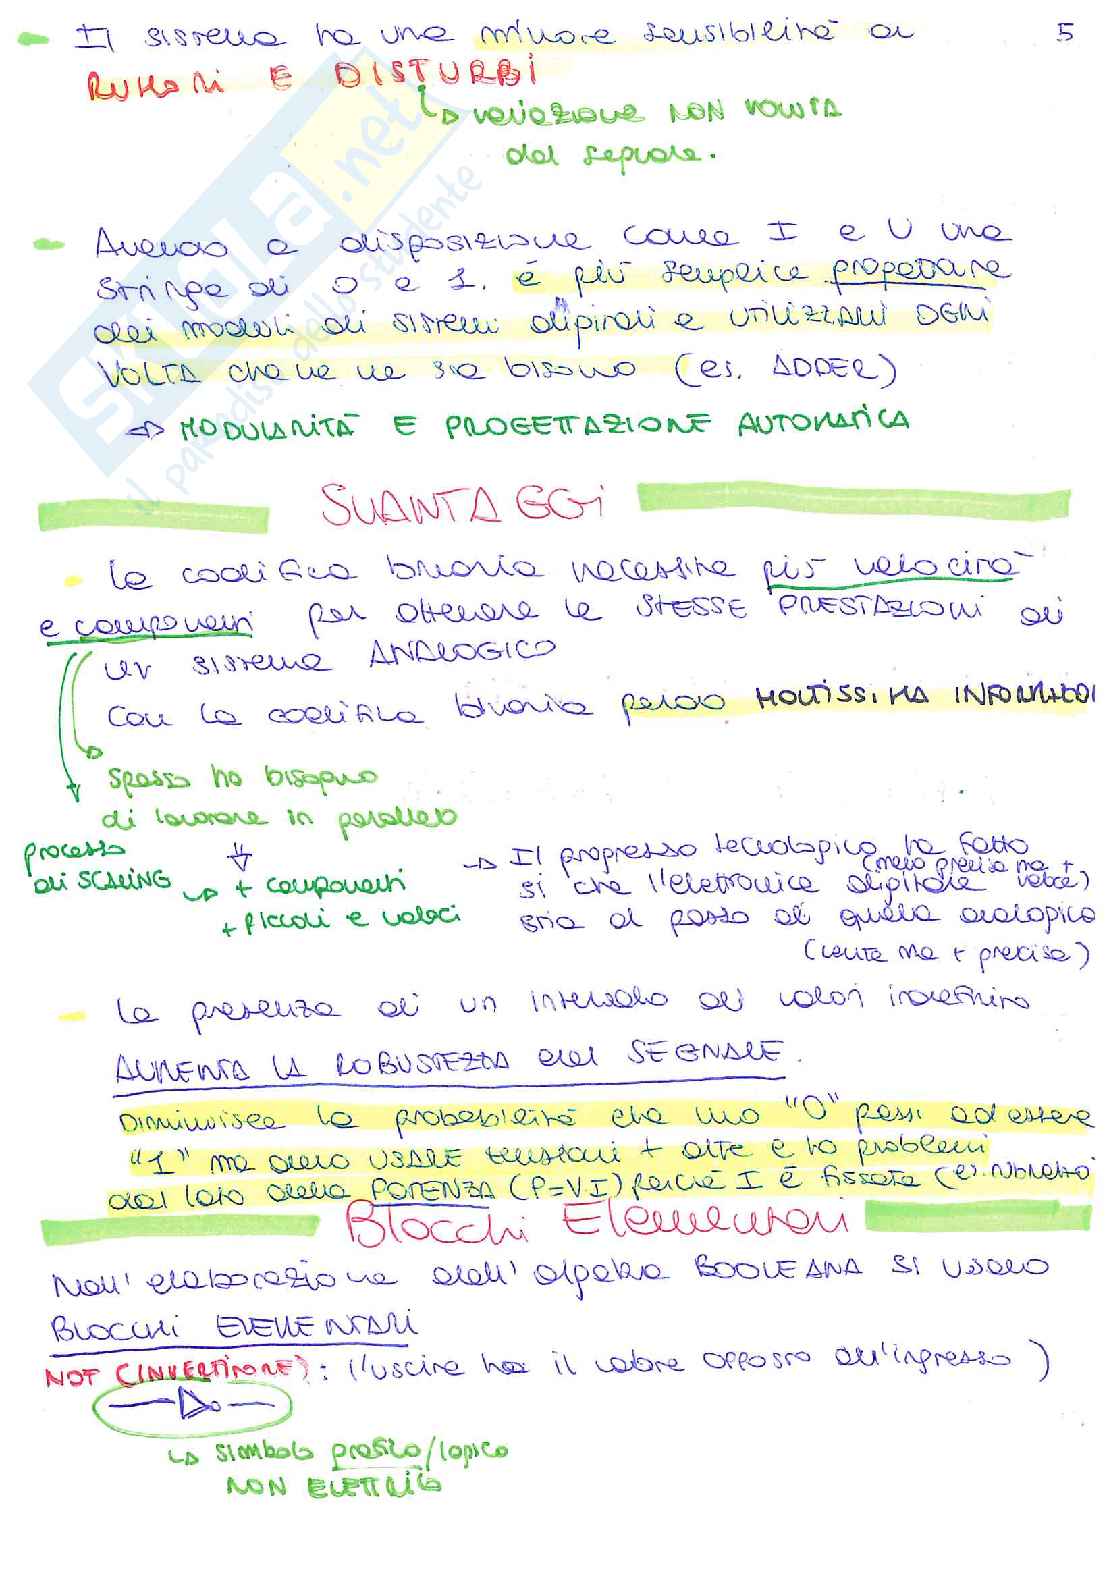 - Il sistema ha una minore sensibilità ai 5
RUMORI E DISTURBI
↳ variazione NON VOLUTA
del segnale.
- Avendo a disposizione come I e U una
stringa di 0 e 1. è più semplice progettare
dei moduli di sistemi digitali e UTILIZZARLI OGNI
VOLTA che ve ne sia bisogno (es. ADDER)
⇒ MODULARITÀ E PROGETTAZIONE AUTOMATICA
SVANTAGGI
- la codifica binaria necessita più velocità
e componenti per ottenere le STESSE PRESTAZIONI di
un sistema ANALOGICO
Con la codifica binaria perdo MOLTISSIMA INFORMAZIONI
spesso ho bisogno
di lavorare in parallelo
processo
di SCALING ↳ + componenti
+ piccoli e veloci
→ Il progresso tecnologico ha fatto
(meno precisa ma +
si che l'elettronica digitale veloce)
stia al passo di quella analogica
(lenta ma + precisa)
- la presenza di un intervallo di valori indefinito
AUMENTA LA ROBUSTEZZA del SEGNALE.
Diminuisce la probabilità che uno "0" passi ad essere
"1" ma devo USARE tensioni + alte e ho problemi
dal lato della POTENZA (P=VI) perché I è fissata (es.
Blocchi Elementari
Nell'elaborazione dell'algebra BOOLEANA si usano
BLOCCHI ELEMENTARI
NOT (INVERTITORE): (l'uscita ha il valore opposto all'ingresso)
↳ simbolo grafico/logico
NON ELETTRICO
SKUOLA.net
il paradiso dello studente